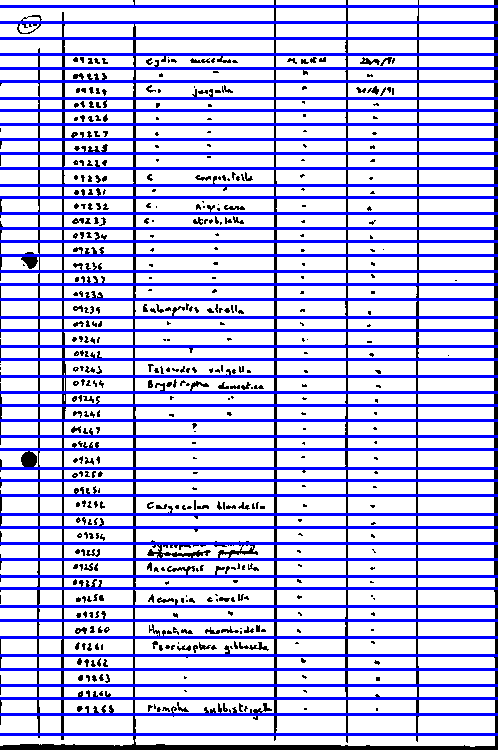 09222 Cydia succedana
09223 " "
09224 C. jungiella
09225 " "
09226 " "
09227 " "
09228 " "
09229 " "
09230 C compositella " "
09231 " " " "
09232 C. nigricana " "
09233 C. strobilella " "
09234 " " " "
09235 " " " "
09236 " " " "
09237 " " " "
09238 " " " "
09239 Eulamprotes atrella " "
09240 " " " "
09241 " " " "
09242 " " "
09243 Teleiodes vulgella " "
09244 Bryotropha domestica " "
09245 " " " "
09246 " " " "
09247 " " "
09248 " " "
09249 " " "
09250 " " "
09251 " " "
09252 Caryocolum blandella " "
09253 " " "
09254 " " "
09255
09256 Anacampsis populella " "
09257 " " " "
09258 Acompsia cinerella " "
09259 " " " "
09260 Hypatima rhomboidella " "
09261 Psoricoptera gibbosella " "
09262 " " "
09263 " " "
09264 " " "
09265 Mompha subbistrigella " "